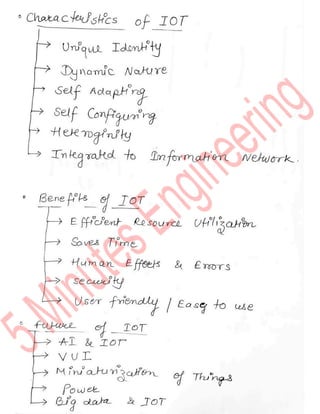 Characteristics of IOT
→ Unique Identity
→ Dynamic Nature
→ Self Adapting
→ Self Configuring
→ Heteroginity
→ Integrated to Information Network.
Benefits of IOT
→ Efficient Resource Utilization
→ Saves Time
→ Human Effects & Errors
→ Security
→ User friendly / Easy to use
future of IOT
→ AI & IOT
→ VUI
→ Miniaturization of Things
→ Power
→ Big data & IOT
5 Minutes Engineering